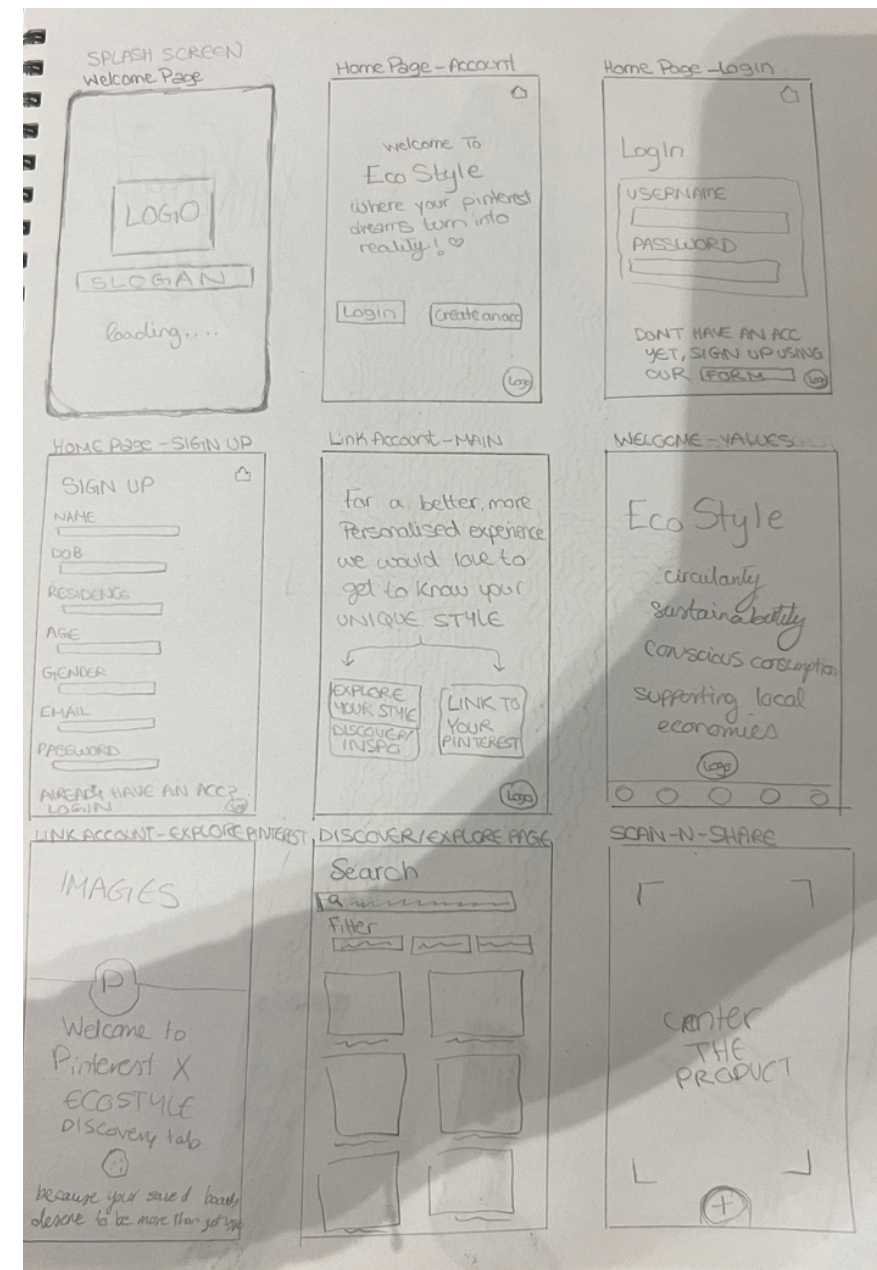 SPLASH SCREEN
Welcome Page
LOGO
SLOGAN
loading....
Home Page - Account
Welcome To
Eco Style
where your pinterest
dreams turn into
reality! ♡
Login
Create an acc
Logo
Home Page - Login
LogIn
USERNAME
PASSWORD
DONT HAVE AN ACC
YET, SIGN UP USING
OUR FORM
Logo
HOME Page - SIGN UP
SIGN UP
NAME
DOB
RESIDENCE
AGE
GENDER
EMAIL
PASSWORD
ALREADY HAVE AN ACC?
LOGIN
Link Account - MAIN
For a better, more
Personalised experience
we would love to
get to know your
UNIQUE STYLE
EXPLORE
YOUR STYLE
DISCOVER/
INSPO
LINK TO
YOUR
PINTEREST
Logo
WELCOME - VALUES
Eco Style
circularity
sustainability
conscious consumption
supporting local
economies
Logo
LINK ACCOUNT - EXPLORE PINTEREST
IMAGES
P
Welcome to
Pinterest X
ECOSTYLE
DISCOVERY tab
because your saved boards
deserve to be more than just
DISCOVER/EXPLORE PAGE
Search
Filter
SCAN-N-SHARE
Center
THE
PRODUCT
+